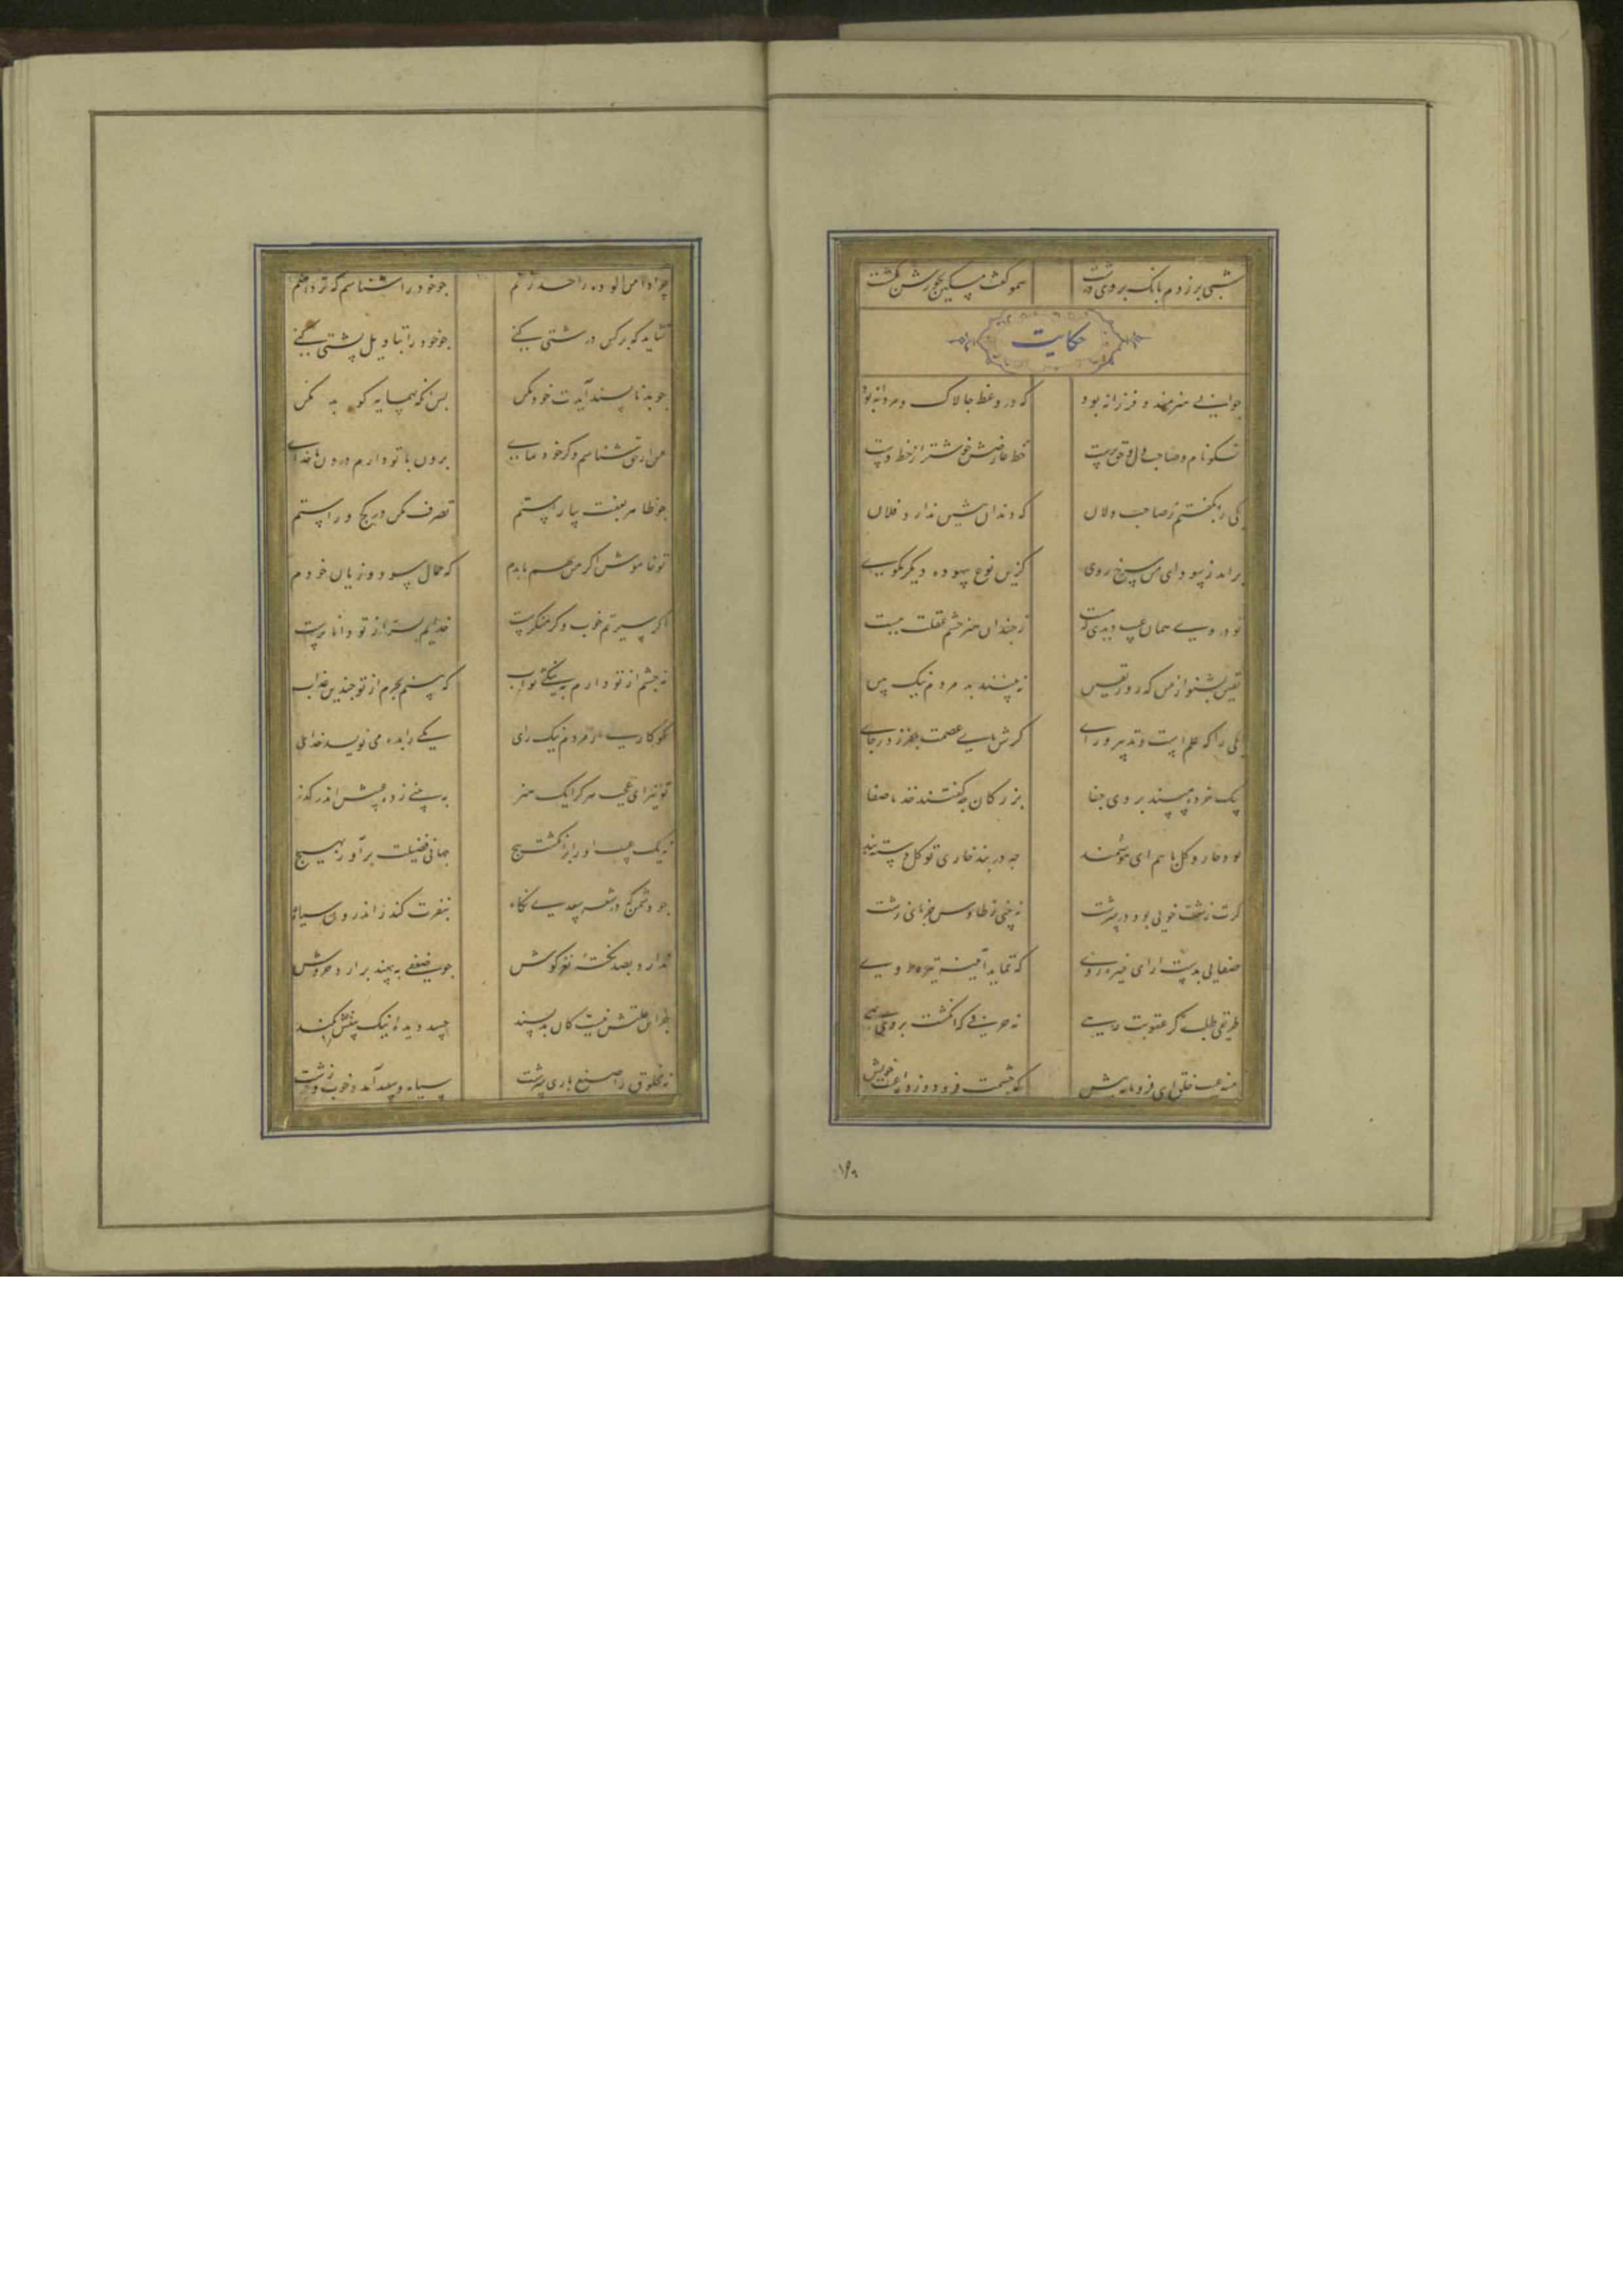 شبی برزدم بانگ بروی درشت همو گفت مسکین بجورش بکشت
حکایت
جوانی هنرمند و فرزانه بود که در وعظ چالاک و مردانه بود
نکونام و صاحب دل و حق پرست خط عارضش خوشتر از خط دست
یکی را بگفتم ز صاحب دلان که دندان پیشین ندارد فلان
برآمد ز سودای من سرخ روی کزین نوع بیهوده دیگر مگوی
تو در وی همان عیب دیدی که هست ز چندان هنر چشم عقلت ببست
یقین بشنو از من که روز یقین نبینند بد مردم نیک بین
یکی را که علم است و تدبیر و رای گرش پای عصمت بلغزد ز جای
بیک خرده مپسند بر وی جفا بزرگان چه گفتند خذ ما صفا
بود خار و گل با هم ای هوشمند چه در بند خاری تو گل دسته بند
کرا زشت خویی بود در سرشت نه بینی ز طاوس جز پای زشت
صفایی بدست آر ای خیره روی که ننماید آیینه تیره روی
طریقی طلب کز عقوبت رهی نه حرفی که انگشت بر وی نهی
منه عیب خلق ای فرومایه پیش که چشمت فرو دوزد از عیب خویش
چرا دامن آلوده را حد زنم چو خود را شناسم که تر دامنم
نشاید که بر کس درشتی کنی چو خود را بتاویل پشتی کنی
چو بد ناپسند آیدت خود مکن پس آنکه به همسایه گو بد مکن
من ار حق شناسم وگر خود نمای برون با تو دارم درون با خدای
چو ظاهر بعفت بیاراستم تصرف مکن در کج و راستم
تو خاموش اگر من بهم یا بدم که حمال سود و زیان خودم
اگر سیرتم خوب و گر منکرست خدایم بسر از تو داناترست
نه چشم از تو دارم به نیکی ثواب که بینم بجرم از تو چندین عذاب
نکوکاری از مردم نیک رای یکی را بده می نویسد خدای
تو نیز ای عجب هر کرا یک هنر به بینی ز ده عیبش اندر گذر
نه یک عیب او را بر انگشت پیچ جهانی فضیلت برآور بهیچ
چو دشمن که در شعر سعدی نگاه بنفرت کند ز اندرون سیاه
ندارد بصد نکته نغز گوش چو ضعفی به بیند برآرد خروش
جز این علتش نیست کان بد پسند حسد دیده نیک بینش بکند
نه مخلوق را صنع باری سرشت سیاه و سپید آمد و خوب و زشت